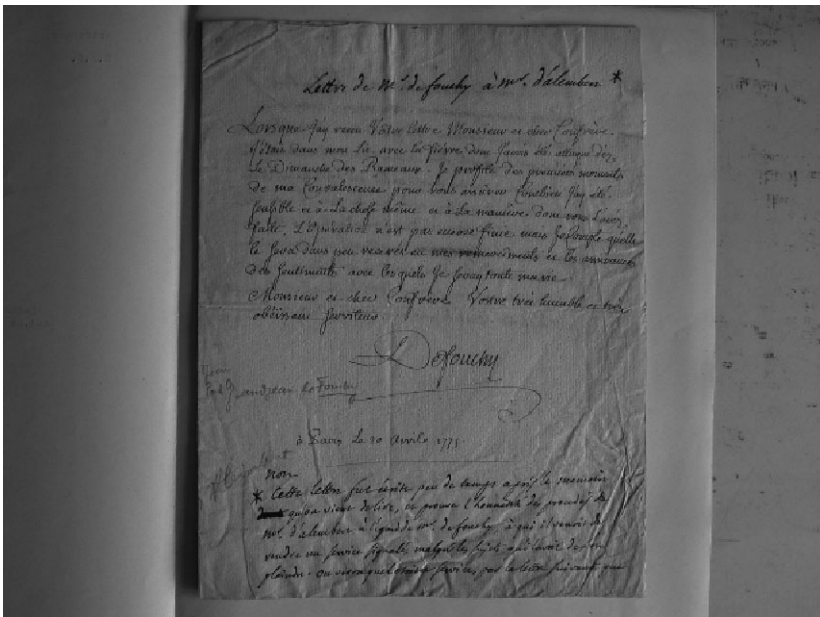 Lettre de Mr. de fouchy à Mr. d'alembert *
Lorsque Jay receu Vostre lettre Monsieur et cher Confrère
J'étois dans mon lit avec la fievre dont J'avois été attaqué dez
le Dimanche des Rameaux. Je profite des premiers moments
de ma Convalescence pour vous Combien Jay été
sensible et à la chose même et à la manière dont vous l'avés
faite. L'opération n'est pas encore finie mais J'espere qu'elle
le sera dans peu recevés en mes remerciements et les assurances
des sentiments avec lesquels Je seray toute ma vie
Monsieur et cher Confrère Vostre très humble et très
obéissant serviteur
Defouchy
Jean
Paul Grandjean de Fouchy
à Paris le 10 Avrile 1775
non
* Cette lettre fut écrite peu de temps après le memoire
qu'on vient de lire, et prouve l'honnêteté des procédés de
Mr. d'alembert à l'égard de Mr. de fouchy, à qui il venoit de
rendre un service signalé, malgré les sujets qu'il avoit de s'en
plaindre. on verra quel étoit ce service, par la lettre suivante que